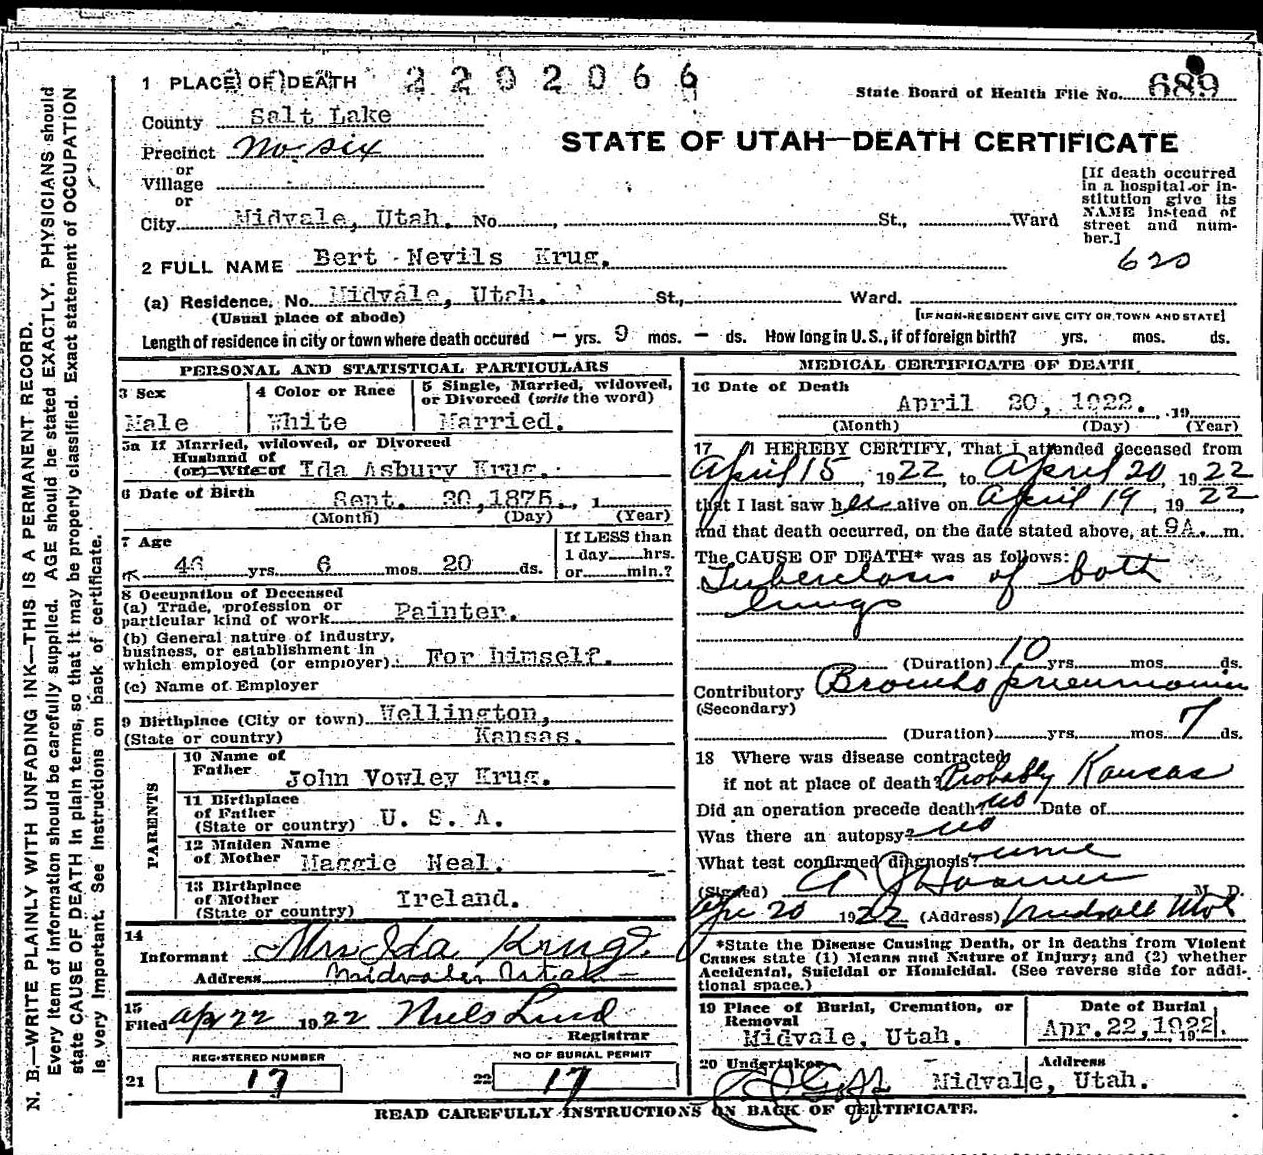 1 PLACE OF DEATH 2202066
State Board of Health File No. 689
County Salt Lake
STATE OF UTAH—DEATH CERTIFICATE
Precinct No. six
or
Village
or
City Midvale, Utah. No. , St., Ward
[If death occurred
in a hospital or in-
stitution give its
NAME instead of
street and num-
ber.]
620
2 FULL NAME Bert Nevils Krug.
(a) Residence. No. Midvale, Utah. St., Ward.
(Usual place of abode) [IF NON-RESIDENT GIVE CITY OR TOWN AND STATE]
Length of residence in city or town where death occured — yrs. 9 mos. — ds. How long in U.S., if of foreign birth? yrs. mos. ds.
PERSONAL AND STATISTICAL PARTICULARS
3 Sex 4 Color or Race 5 Single, Married, widowed,
or Divorced (write the word)
Male White Married.
5a If Married, widowed, or Divorced
Husband of
(or) Wife of Ida Asbury Krug.
6 Date of Birth Sept. 30, 1875., 1
(Month) (Day) (Year)
7 Age If LESS than
1 day hrs.
46 yrs. 6 mos. 20 ds. or min.?
8 Occupation of Deceased
(a) Trade, profession or
particular kind of work Painter.
(b) General nature of industry,
business, or establishment in
which employed (or employer) For himself.
(c) Name of Employer
9 Birthplace (City or town) Wellington,
(State or country) Kansas.
PARENTS
10 Name of
Father John Vowley Krug.
11 Birthplace
of Father
(State or country) U. S. A.
12 Maiden Name
of Mother Maggie Neal.
13 Birthplace
of Mother
(State or country) Ireland.
14
Informant Mrs Ida Krug.
Address Midvale, Utah
15
Filed Apr 22 1922 Niels Lind
Registrar
REGISTERED NUMBER NO OF BURIAL PERMIT
21 17 22 17
MEDICAL CERTIFICATE OF DEATH
16 Date of Death
April 20, 1922. 19
(Month) (Day) (Year)
17 I HEREBY CERTIFY, That I attended deceased from
April 15, 1922 to April 20, 1922
that I last saw h alive on April 19, 1922,
and that death occurred, on the date stated above, at 9A. m.
The CAUSE OF DEATH* was as follows:
Tuberculosis of both
lungs
(Duration) 10 yrs. mos. ds.
Contributory Broncho pneumonia
(Secondary)
(Duration) yrs. mos. 7 ds.
18 Where was disease contracted
if not at place of death? Probably Kansas
Did an operation precede death? no Date of
Was there an autopsy? no
What test confirmed diagnosis?
(Signed) M. D.
Apr 20 1922 (Address) Midvale Utah
*State the Disease Causing Death, or in deaths from Violent
Causes state (1) Means and Nature of Injury; and (2) whether
Accidental, Suicidal or Homicidal. (See reverse side for addi-
tional space.)
19 Place of Burial, Cremation, or
Removal
Midvale, Utah.
Date of Burial
Apr. 22, 1922. 19
20 Undertaker Address
Goff Midvale, Utah.
READ CAREFULLY INSTRUCTIONS ON BACK OF CERTIFICATE.
N. B.—WRITE PLAINLY WITH UNFADING INK—THIS IS A PERMANENT RECORD.
Every item of information should be carefully supplied. AGE should be stated EXACTLY. PHYSICIANS should
state CAUSE OF DEATH in plain terms, so that it may be properly classified. Exact statement of OCCUPATION
is very important. See instructions on back of certificate.